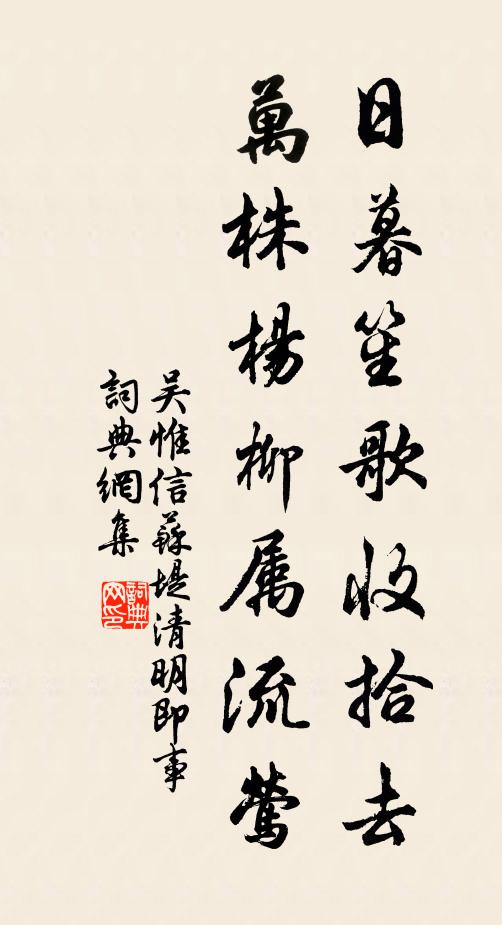 日暮笙歌收拾去
萬株楊柳属流鶯
吴惟信蘇堤清明即事
詞典網集
詞典網印